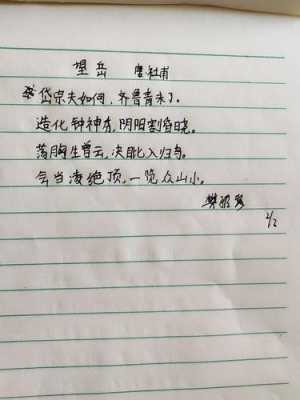 望岳 唐杜甫
岱宗夫如何,齐鲁青未了。
造化钟神秀,阴阳割昏晓。
荡胸生曾云,决眦入归鸟。
会当凌绝顶,一览众山小。
1/2